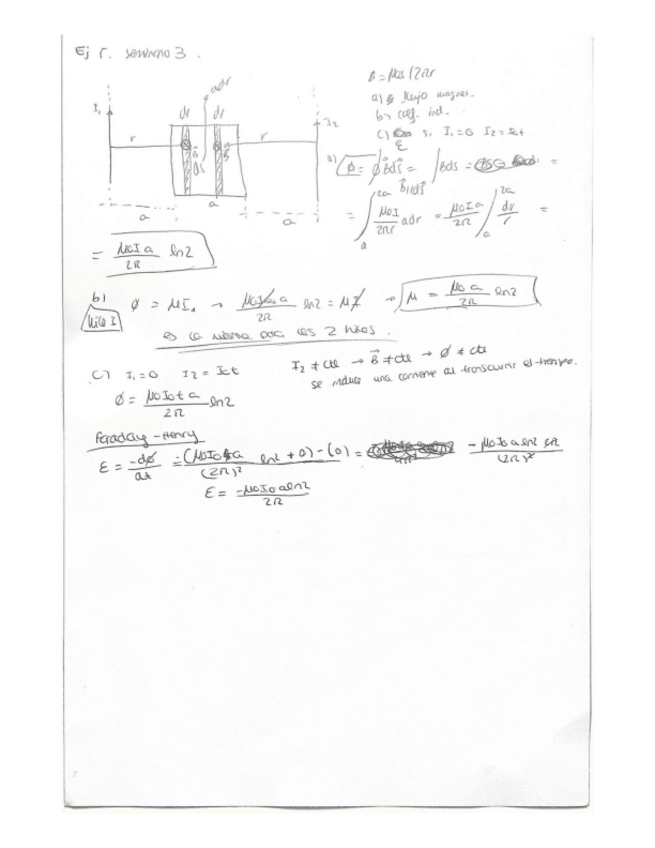 Ej 5. seminario 3.
B = μoI/2πr
a) φ flujo magnet.
b) coef. ind.
c) ε si I₁=0 I₂=Ict
I₁ dr dr adr I₂
r r
B ds B
a a a
a) φ = ∮ B ds = ∫ Bds =
B || ds
= ∫ₐ²ᵃ μoI/2πr adr = μoIa/2π ∫ₐ²ᵃ dr/r =
= μoIa/2π ln2
b) φ = MI₁ → μoI₁a/2π ln2 = MI → M = μoa/2π ln2
Hilo I
es la misma para los 2 hilos.
c) I₁=0 I₂=Ict I₂ ≠ cte → B ≠ cte → φ ≠ cte
se induce una corriente al transcurrir el tiempo.
φ = μoIota/2π ln2
Faraday-Henry
ε = -dφ/dt = -(μoIoa ln2 + 0) - (0)/(2π)² = -μoIoaln2 2π/(2π)²
ε = -μoIoaln2/2π